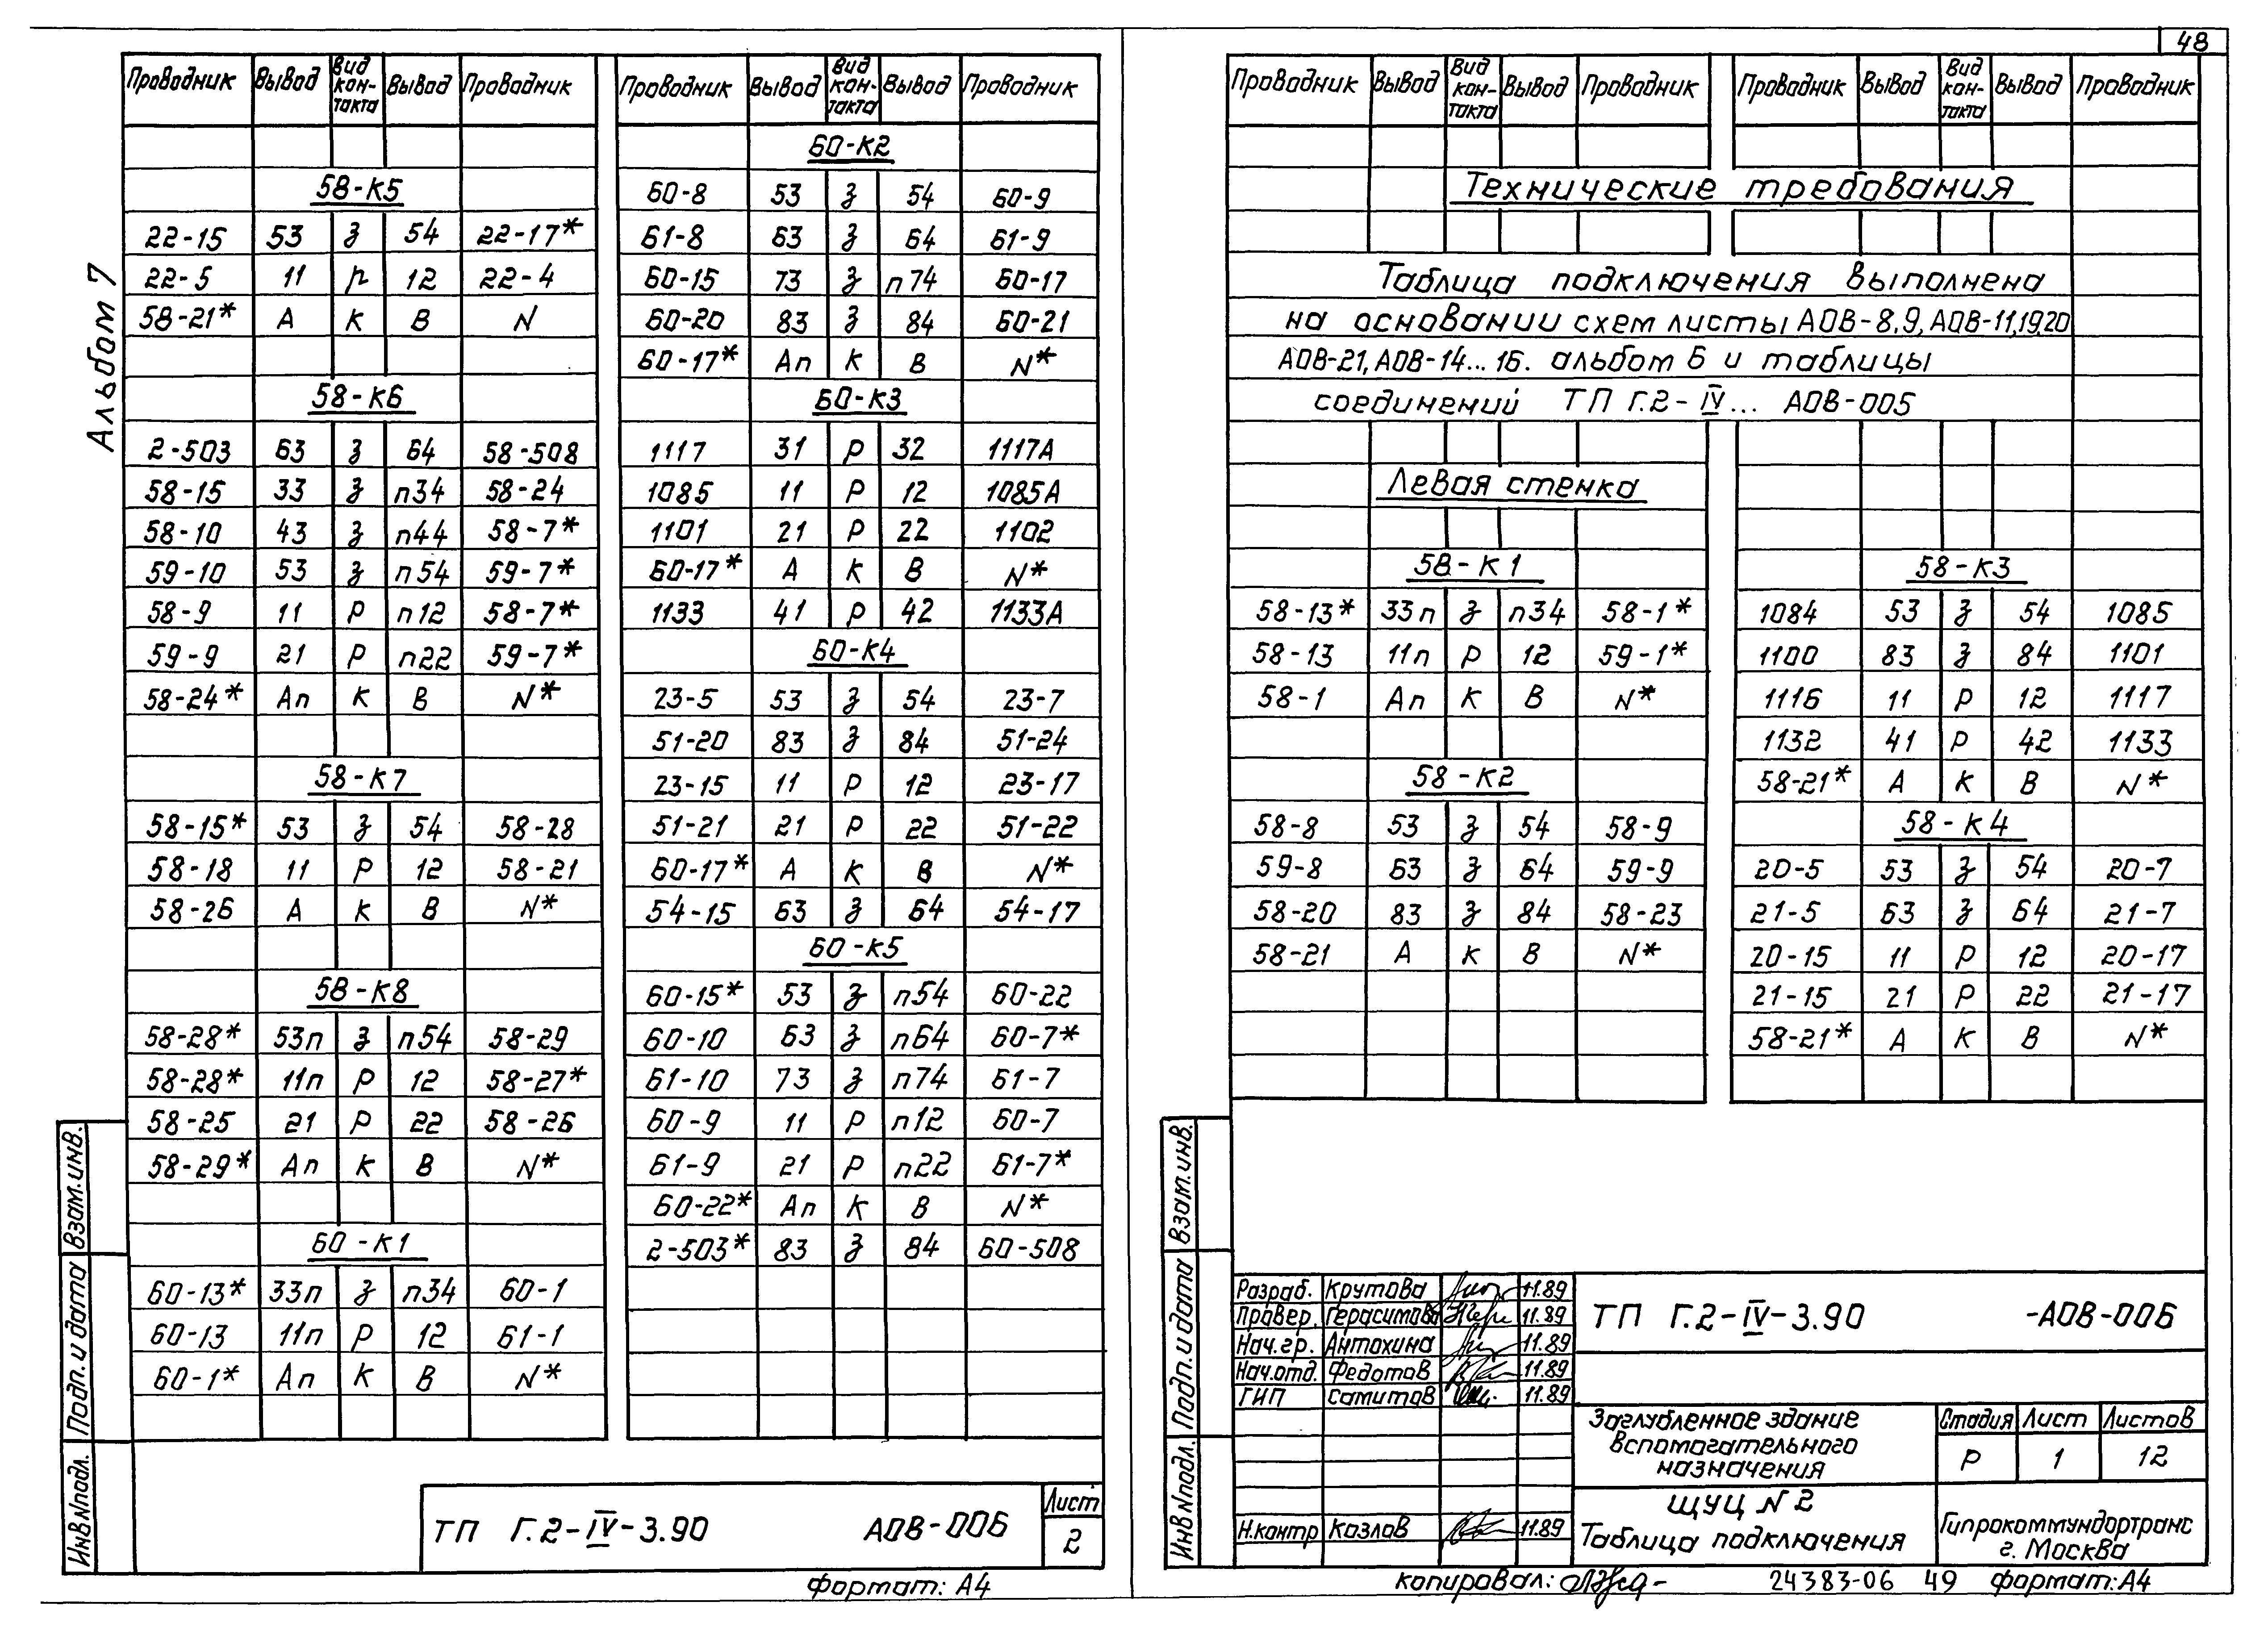 48
Альбом 7
Проводник Вывод Вид кон-такта Вывод Проводник
58-К5
22-15 53 З 54 22-17*
22-5 11 р 12 22-4
58-21* А К В N
58-К6
2-503 63 З 64 58-508
58-15 33 З п34 58-24
58-10 43 З п44 58-7*
59-10 53 З п54 59-7*
58-9 11 Р п12 58-7*
59-9 21 Р п22 59-7*
58-24* Ап К В N*
58-К7
58-15* 53 З 54 58-28
58-18 11 Р 12 58-21
58-26 А К В N*
58-К8
58-28* 53п З п54 58-29
58-28* 11п Р 12 58-27*
58-25 21 Р 22 58-26
58-29* Ап К В N*
60-К1
60-13* 33п З п34 60-1
60-13 11п Р 12 61-1
60-1* Ап К В N*
Проводник Вывод Вид кон-такта Вывод Проводник
60-К2
60-8 53 З 54 60-9
61-8 63 З 64 61-9
60-15 73 З п74 60-17
60-20 83 З 84 60-21
60-17* Ап К В N*
60-К3
1117 31 Р 32 1117А
1085 11 Р 12 1085А
1101 21 Р 22 1102
60-17* А К В N*
1133 41 Р 42 1133А
60-К4
23-5 53 З 54 23-7
51-20 83 З 84 51-24
23-15 11 Р 12 23-17
51-21 21 Р 22 51-22
60-17* А К В N*
54-15 63 З 64 54-17
60-К5
60-15* 53 З п54 60-22
60-10 63 З п64 60-7*
61-10 73 З п74 61-7
60-9 11 Р п12 60-7
61-9 21 Р п22 61-7*
60-22* Ап К В N*
2-503* 83 З 84 60-508
Взам.инв.
Подп. и дата
Инв.Nподл.
ТП Г.2-IV-3.90 АОВ-006
Лист
2
формат: А4
Проводник Вывод Вид кон-такта Вывод Проводник
Проводник Вывод Вид кон-такта Вывод Проводник
Технические требования
Таблица подключения выполнена
на основании схем листы АОВ-8,9, АОВ-11,19,20
АОВ-21, АОВ-14...16. альбом 6 и таблицы
соединений ТП Г.2-IV... АОВ-005
Левая стенка
58-К1
58-13* 33п З п34 58-1*
58-13 11п Р 12 59-1*
58-1 Ап К В N*
58-К2
58-8 53 З 54 58-9
59-8 63 З 64 59-9
58-20 83 З 84 58-23
58-21 А К В N*
58-К3
1084 53 З 54 1085
1100 83 З 84 1101
1116 11 Р 12 1117
1132 41 Р 42 1133
58-21* А К В N*
58-К4
20-5 53 З 54 20-7
21-5 63 З 64 21-7
20-15 11 Р 12 20-17
21-15 21 Р 22 21-17
58-21* А К В N*
Взам.инв.
Подп. и дата
Инв Nподл.
Разраб. Крутова 11.89
Провер. Герасимова 11.89
Нач.гр. Антохина 11.89
Нач.отд. Федотов 11.89
ГИП Самитов 11.89
Н.контр Козлов 11.89
ТП Г.2-IV-3.90 -АОВ-006
Заглубленное здание
вспомогательного
назначения
Стадия Лист Листов
Р 1 12
ЩУЦ N2
Таблица подключения
Гипрокоммундортранс
г. Москва
копировал: 24383-06 49 формат: А4